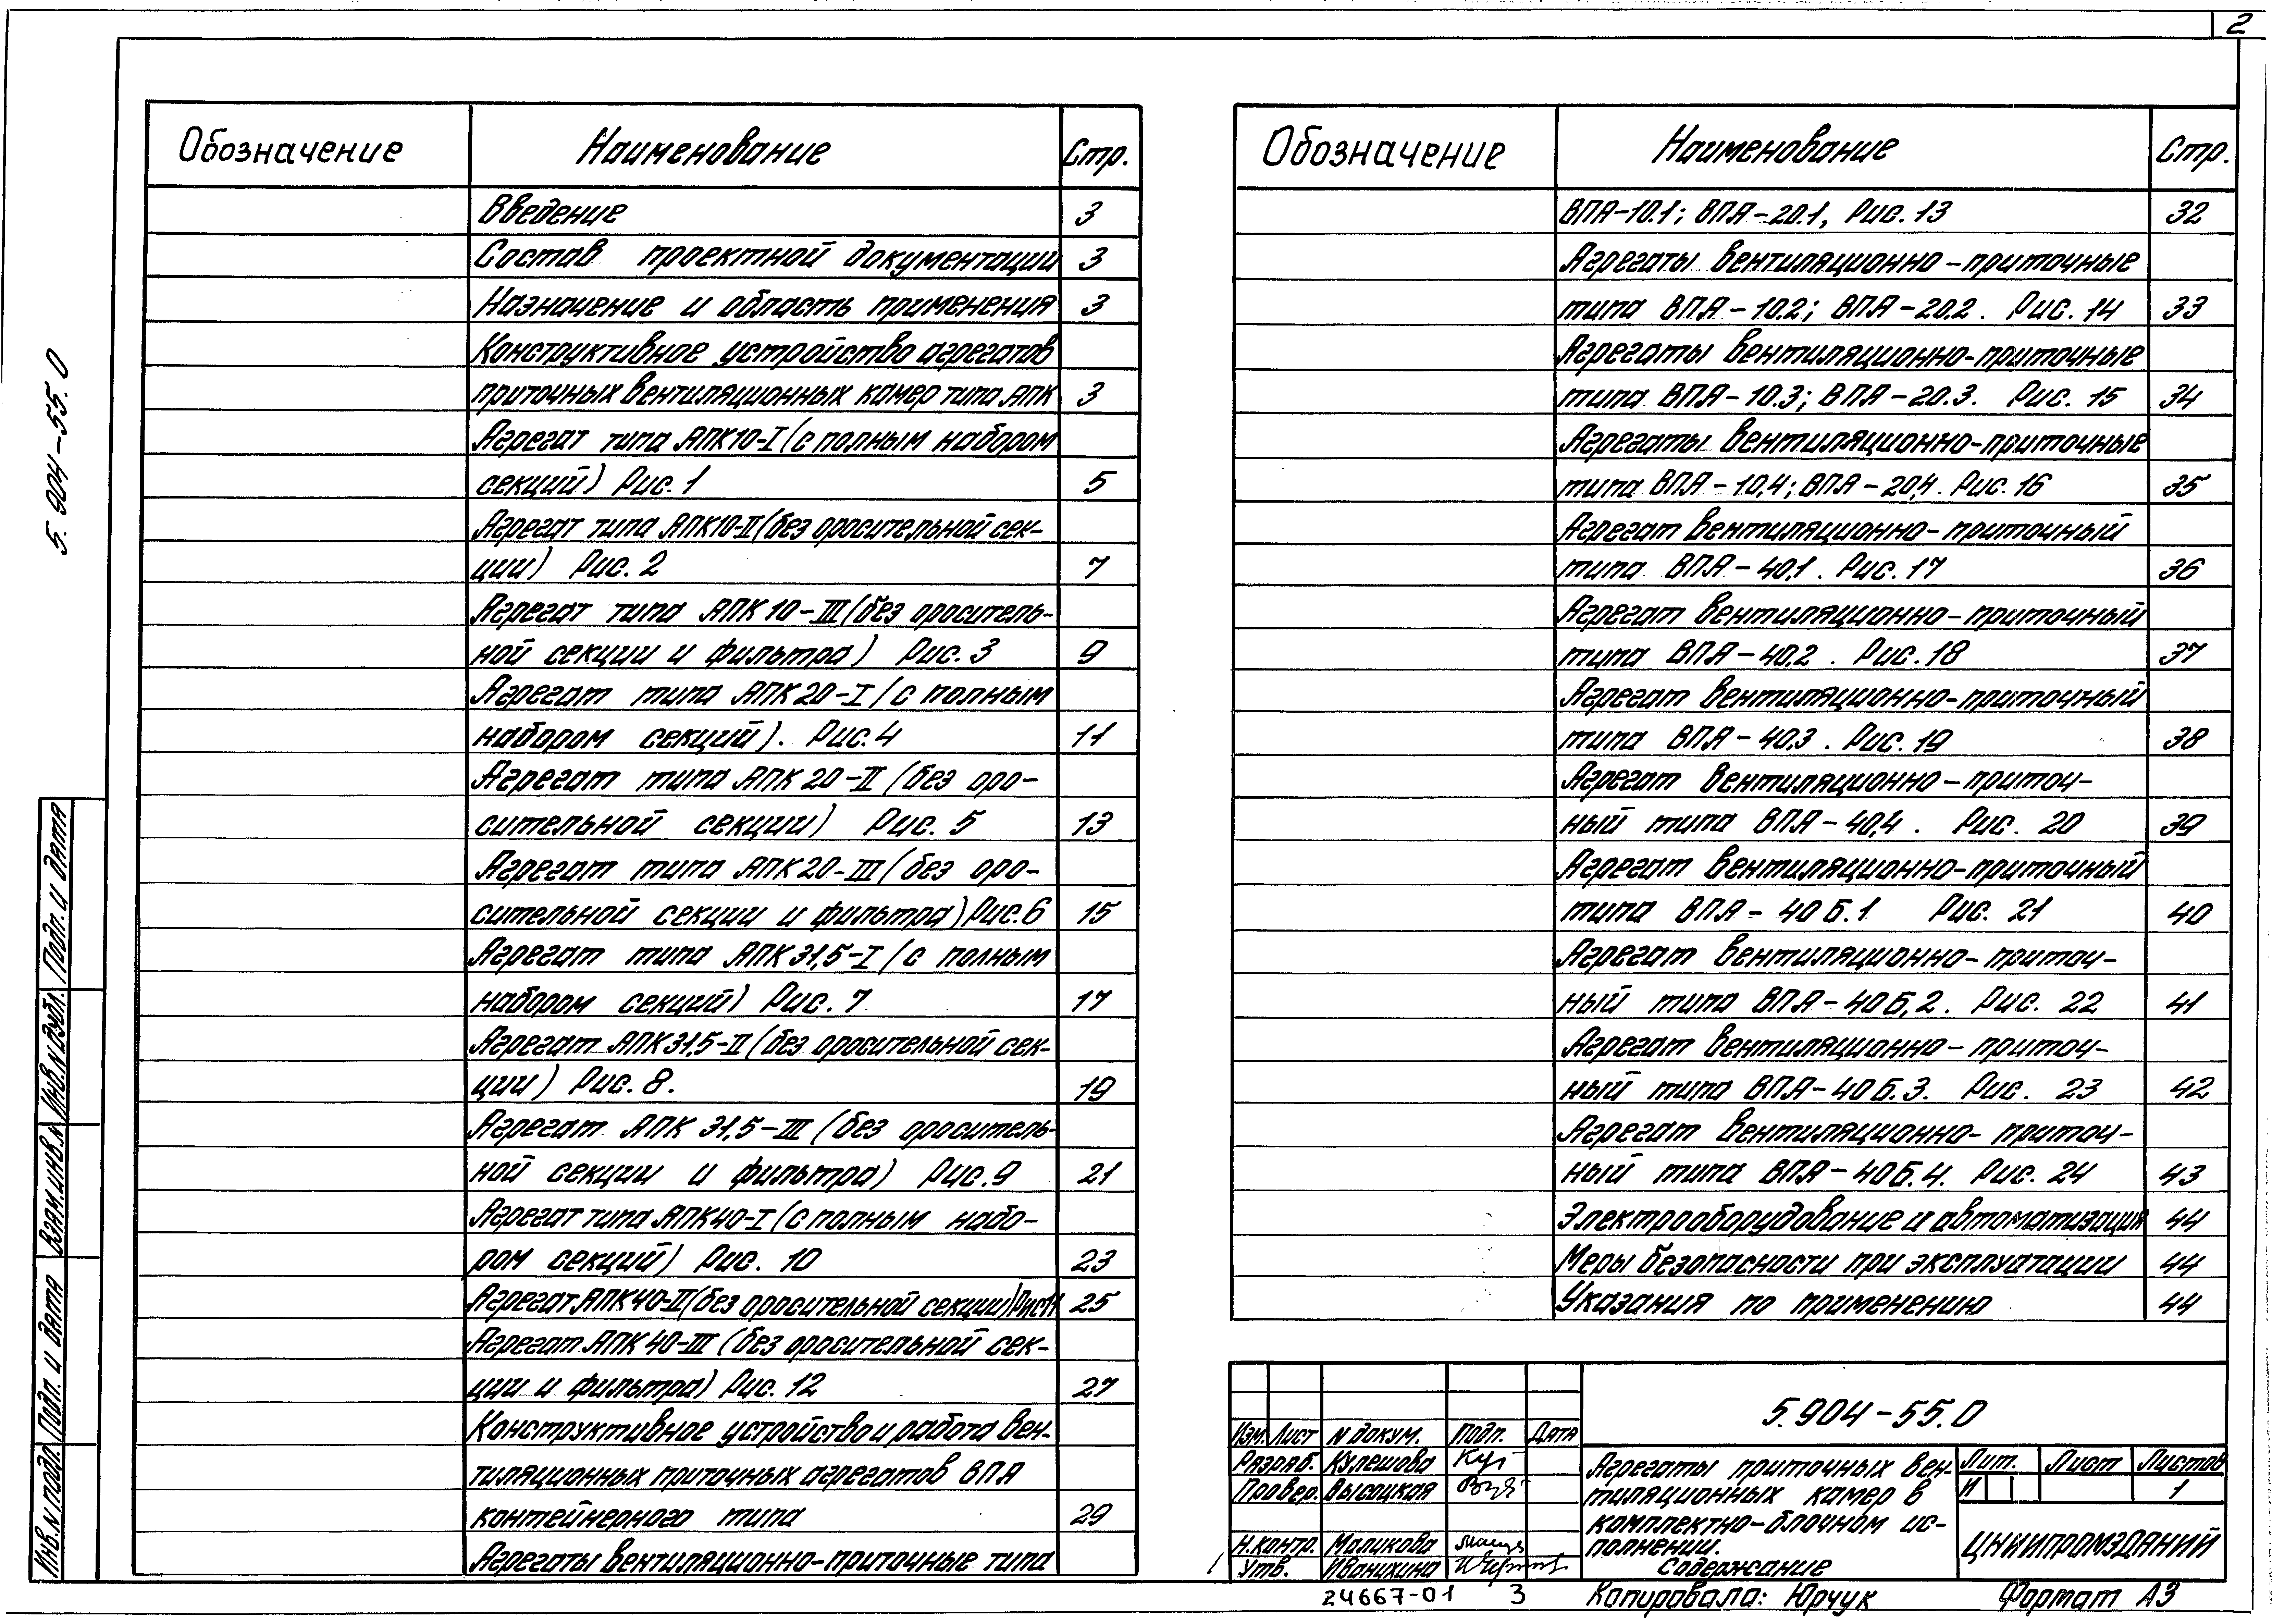 2
5.904-55.0
Обозначение Наименование Стр.
Введение 3
Состав проектной документации 3
Назначение и область применения 3
Конструктивное устройство агрегатов
приточных вентиляционных камер типа АПК 3
Агрегат типа АПК10-I (с полным набором
секций) Рис. 1 5
Агрегат типа АПК10-II (без оросительной сек-
ции) Рис. 2 7
Агрегат типа АПК 10-III (без ороситель-
ной секции и фильтра) Рис. 3 9
Агрегат типа АПК 20-I (с полным
набором секций). Рис. 4 11
Агрегат типа АПК 20-II (без оро-
сительной секции) Рис. 5 13
Агрегат типа АПК 20-III (без оро-
сительной секции и фильтра) Рис. 6 15
Агрегат типа АПК 31,5-I (с полным
набором секций) Рис. 7 17
Агрегат АПК 31,5-II (без оросительной сек-
ции) Рис. 8. 19
Агрегат АПК 31,5-III (без ороситель-
ной секции и фильтра) Рис. 9 21
Агрегат типа АПК40-I (с полным набо-
ром секций) Рис. 10 23
Агрегат АПК40-II (без оросительной секции) Рис11 25
Агрегат АПК 40-III (без оросительной сек-
ции и фильтра) Рис. 12 27
Конструктивное устройство и работа вен-
тиляционных приточных агрегатов ВПА
контейнерного типа 29
Агрегаты вентиляционно-приточные типа
Обозначение Наименование Стр.
ВПА-10.1; ВПА-20.1, Рис. 13 32
Агрегаты вентиляционно-приточные
типа ВПА-10.2; ВПА-20.2. Рис. 14 33
Агрегаты вентиляционно-приточные
типа ВПА-10.3; ВПА-20.3. Рис. 15 34
Агрегаты вентиляционно-приточные
типа ВПА-10,4; ВПА-20,4. Рис. 16 35
Агрегат вентиляционно-приточный
типа ВПА-40,1. Рис. 17 36
Агрегат вентиляционно-приточный
типа ВПА-40,2. Рис. 18 37
Агрегат вентиляционно-приточный
типа ВПА-40,3. Рис. 19 38
Агрегат вентиляционно-приточ-
ный типа ВПА-40,4. Рис. 20 39
Агрегат вентиляционно-приточный
типа ВПА-40Б.1 Рис. 21 40
Агрегат вентиляционно-приточ-
ный типа ВПА-40Б,2. Рис. 22 41
Агрегат вентиляционно-приточ-
ный типа ВПА-40Б.3. Рис. 23 42
Агрегат вентиляционно-приточ-
ный типа ВПА-40Б.4. Рис. 24 43
Электрооборудование и автоматизация 44
Меры безопасности при эксплуатации 44
Указания по применению 44
5.904-55.0
Изм. Лист N докум. Подп. Дата
Разраб. Кулешова
Провер. Высоцкая
Н.контр. Маликова
Утв. Иванихина
Агрегаты приточных вен-
тиляционных камер в
комплектно-блочном ис-
полнении.
Содержание
Лит. Лист Листов
И 1
ЦНИИПРОМЗДАНИЙ
24667-01 3 Копировала: Юрчук Формат А3
Инв.N подл. Подп. и дата Взам.инв.N Инв.N дубл. Подп. и дата